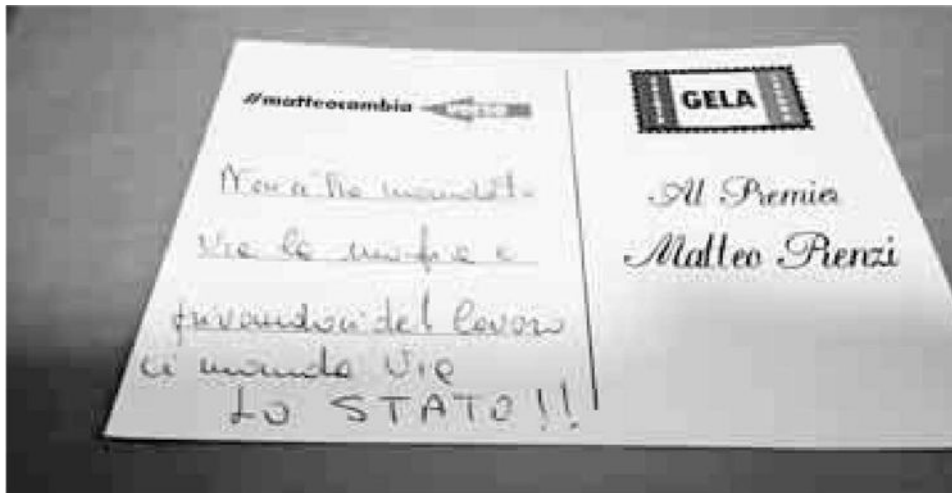 #matteocambia VERSO
Non ci ha mandato
via la mafia e
privandoci del lavoro
ci manda via
LO STATO!!
GELA
Al Premier
Matteo Renzi